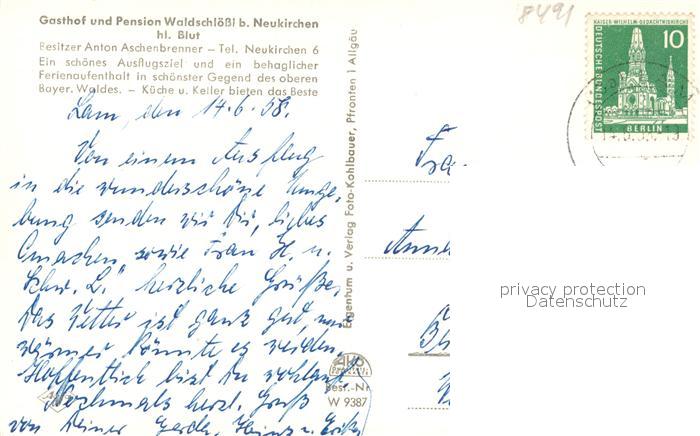 Gasthof und Pension Waldschlößl b. Neukirchen
hl. Blut
Besitzer Anton Aschenbrenner – Tel. Neukirchen 6
Ein schönes Ausflugsziel und ein behaglicher
Ferienaufenthalt in schönster Gegend des oberen
Bayer. Waldes. – Küche u. Keller bieten das Beste
Lam, den 14.6.58.
Von einem Ausflug
in die wunderschöne Umge-
bung senden wir Dir, liebes
sowie Frau H. u.
Schw. L." herzliche Grüße.
Das Wetter ist ganz gut, nur
wärmer könnte es werden.
Hoffentlich bist Du wohlauf.
Nochmals herzl. Gruß
von Deiner Gerda, Heinz u. Erika
Eigentum u. Verlag Foto-Kohlbauer, Pfronten i Allgäu
Best.-Nr.
W 9387
8491
KAISER-WILHELM-GEDÄCHTNISKIRCHE
10
DEUTSCHE BUNDESPOST
BERLIN
Fra
Anne
privacy protection
Datenschutz